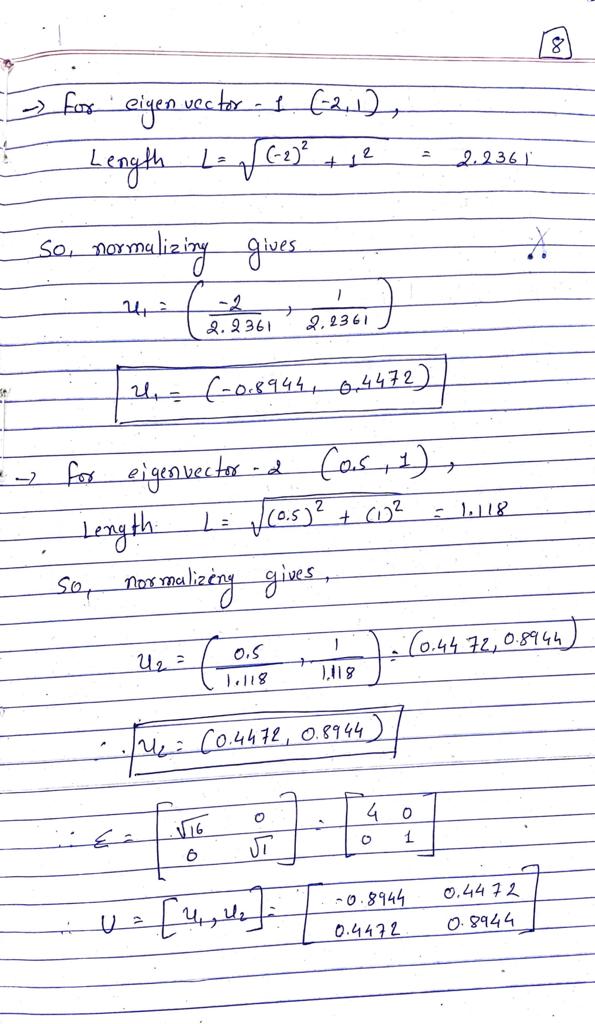 8
→ For eigen vector - 1 (-2,1),
Length L = √(-2)² + 1² = 2.2361
So, normalizing gives
u₁ = ( -2/2.2361 , 1/2.2361 )
u₁ = (-0.8944, 0.4472)
→ for eigenvector - 2 (0.5, 1),
Length L = √(0.5)² + (1)² = 1.118
So, normalizing gives,
u₂ = ( 0.5/1.118 , 1/1.118 ) = (0.4472, 0.8944)
∴ u₂ = (0.4472, 0.8944)
∴ Σ = [ √16 0 ; 0 √1 ] = [ 4 0 ; 0 1 ]
∴ U = [u₁, u₂] = [ -0.8944 0.4472 ; 0.4472 0.8944 ]